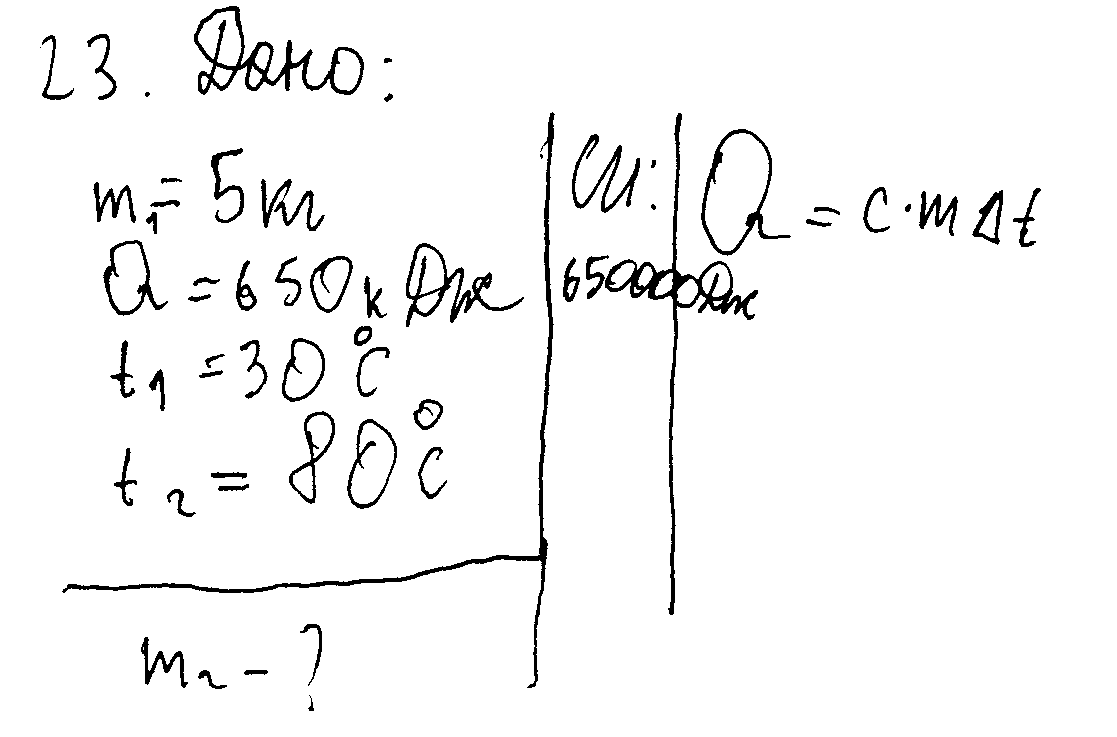 23. Дано:
m₁ = 5 кг
Q = 650 к Дж
t₁ = 30 °C
t₂ = 80 °C
m₂ - ?
СИ:
650000 Дж
Q = c · m Δt